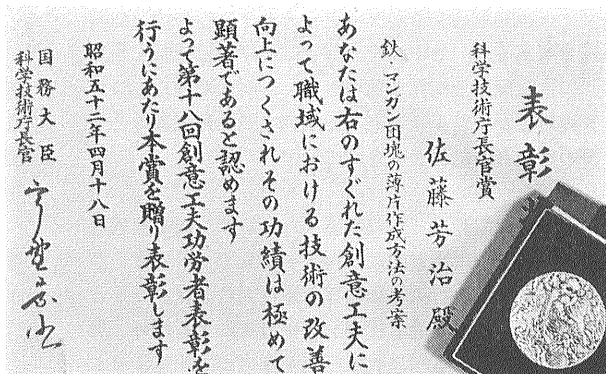 表彰
科学技術庁長官賞
佐藤芳治殿
鉄・マンガン団塊の薄片作成方法の考案
あなたは右のすぐれた創意工夫に
よって職域における技術の改善
向上につくされその功績は極めて
顕著であると認めます
よって第十八回創意工夫功労者表彰を
行うにあたり本賞を贈り表彰します
昭和五十二年四月十八日
国務大臣
科学技術庁長官